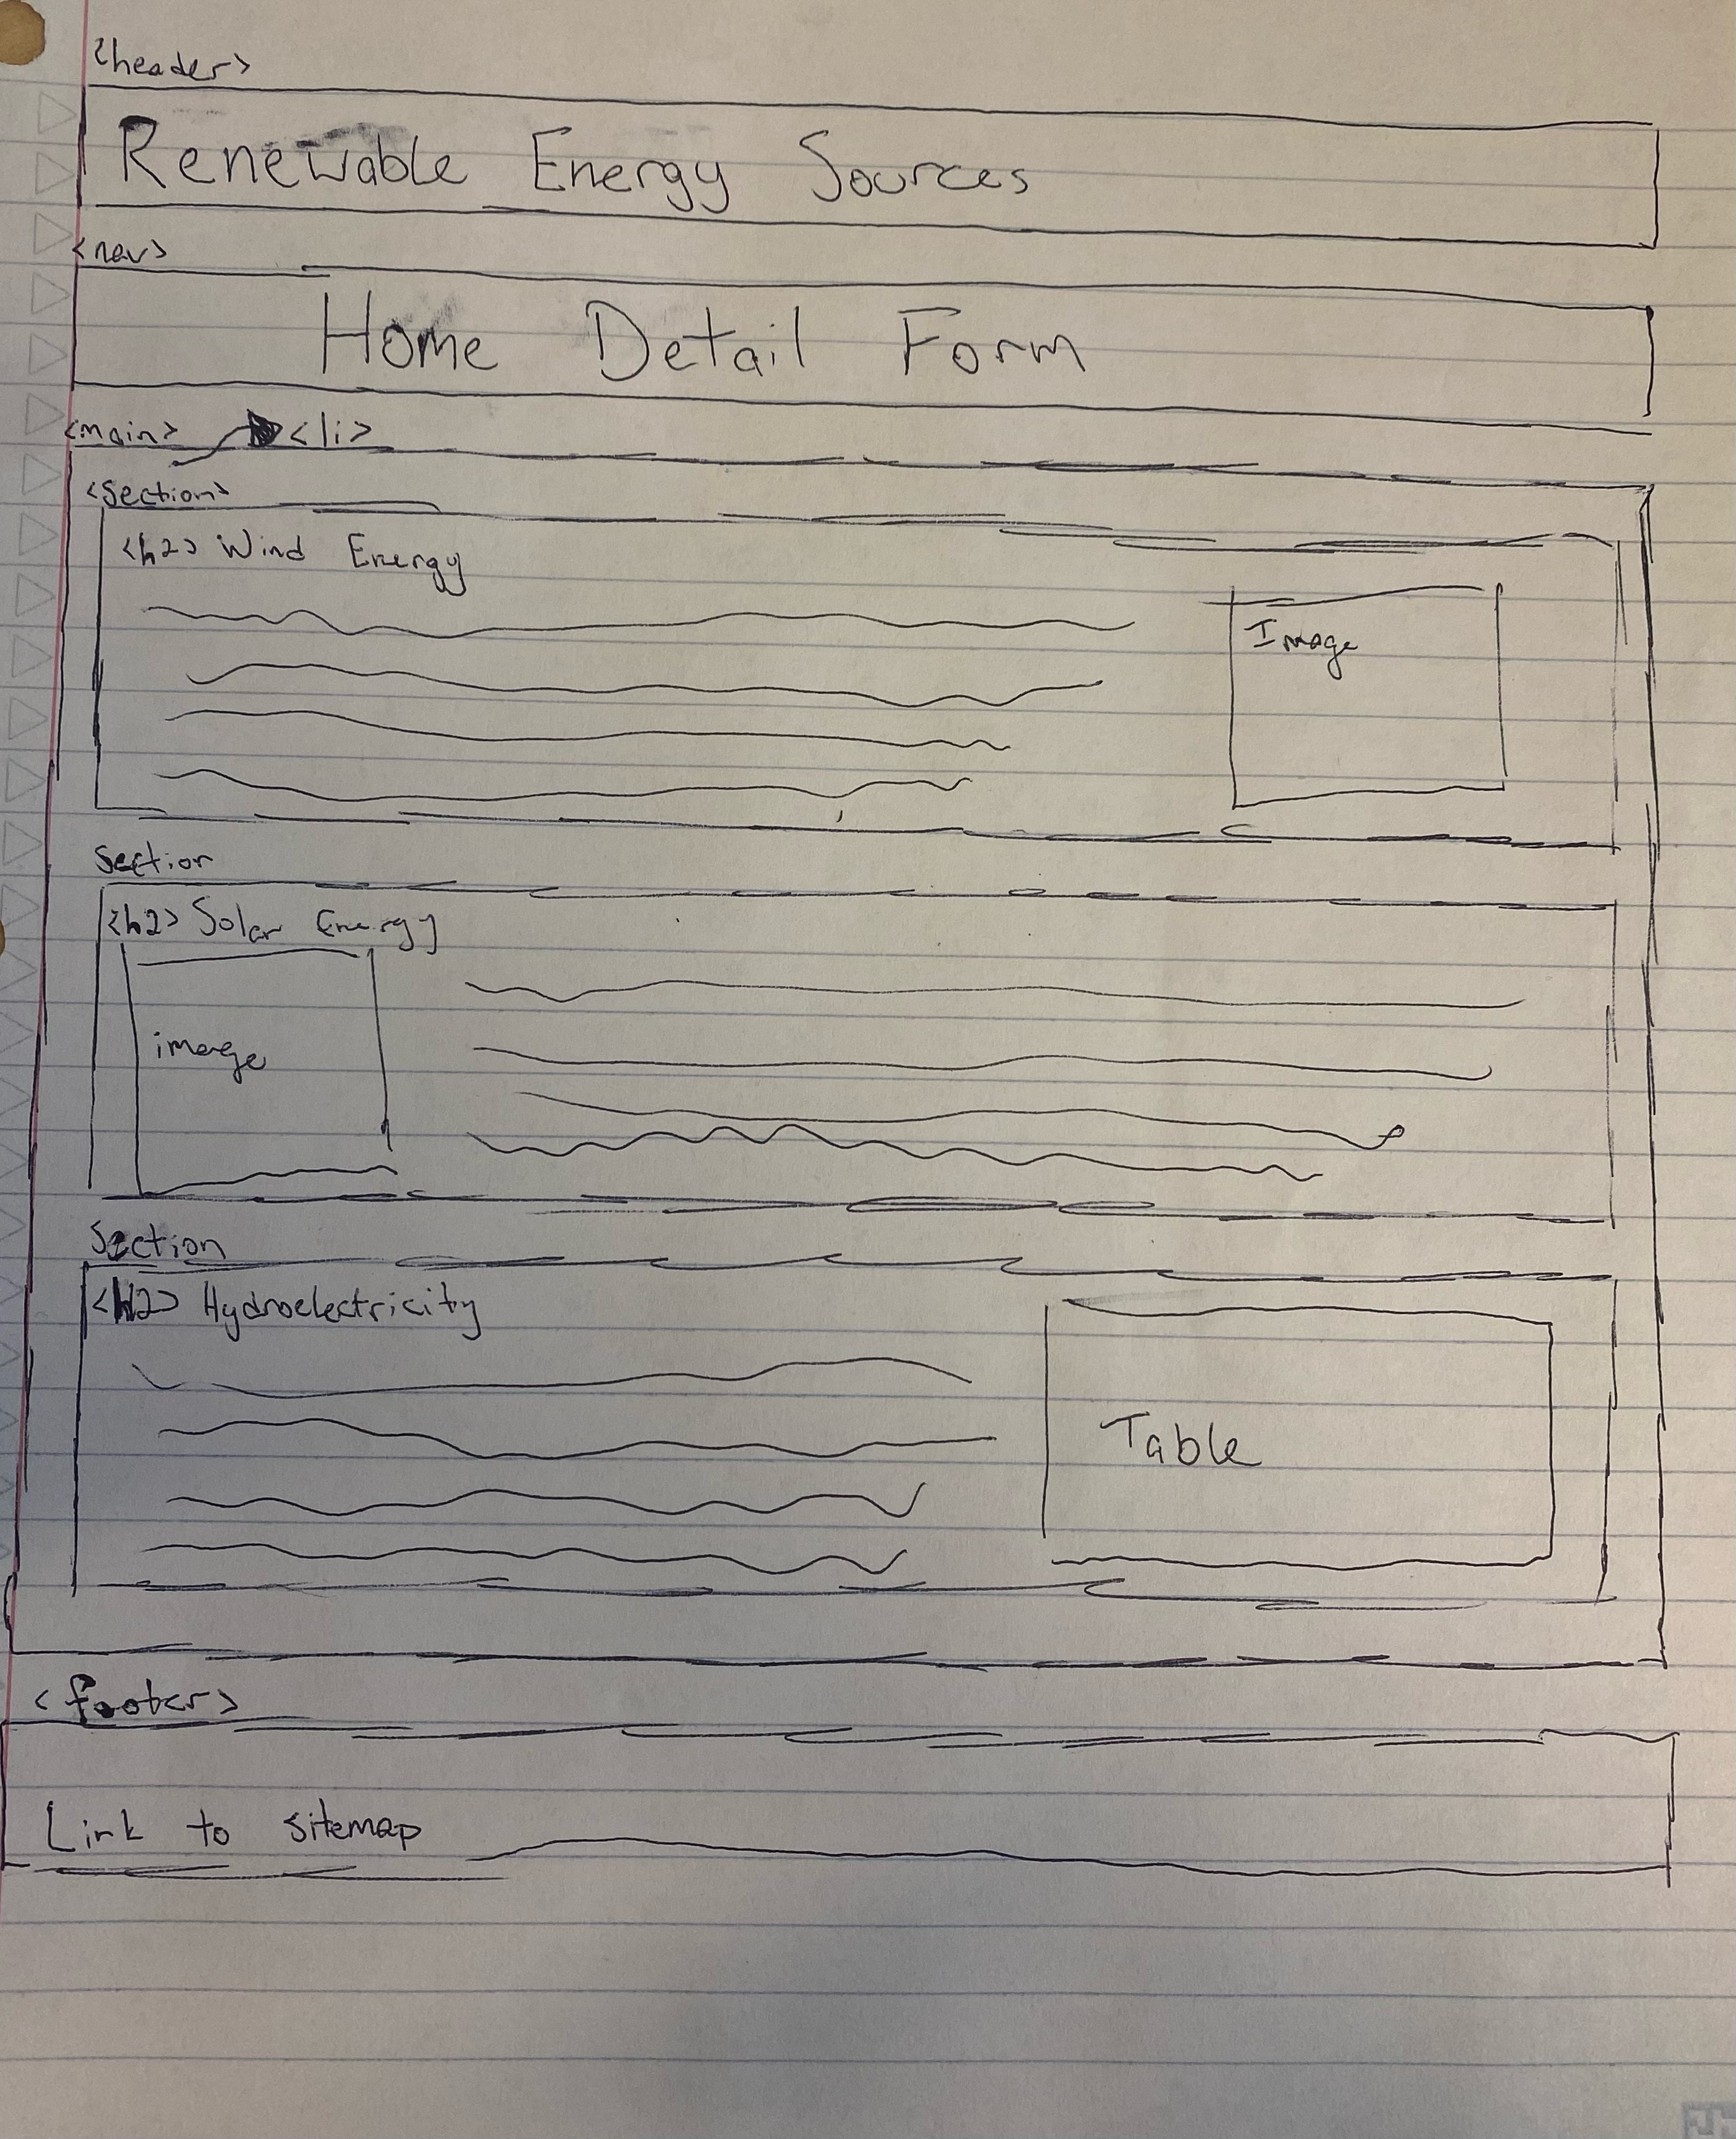 <header>
Renewable Energy Sources
<nav>
Home Detail Form
<main> <li>
<section>
<h2> Wind Energy
Image
Section
<h2> Solar Energy
image
Section
<h2> Hydroelectricity
Table
<footer>
Link to sitemap